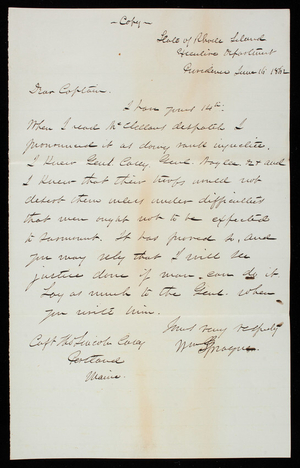 - Copy -
State of Rhode Island
Executive Department
Providence June 16 1862
Dear Captain.
I have yours 14th.
When I read McClellans despatch I
pronounced it as doing rank injustice.
I knew Genl Casey, Genl. Naglee &c and
I knew that their troops would not
desert them unless under difficulties
that were ought not to be expected
to surmount. It has proved so, and
you may rely that I will see
justice done if man can do it
Say as much to the Genl. when
you write him.
Yours very respectfy
Wm Sprague.
Capt Thos Lincoln Casey
Portland
Maine.